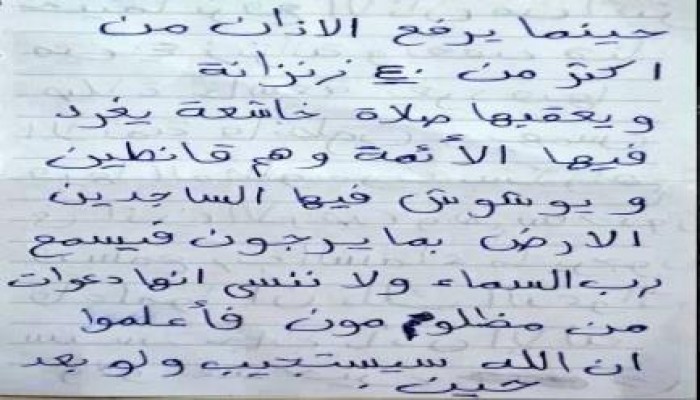 حينما يرفع الاذان من
اكثر من ٤٠ زنزانة
ويعقبها صلاة خاشعة يغرد
فيها الأئمة وهم قانطين
ويوشوش فيها الساجدين
الارض بما يرجون فيسمع
رب السماء ولا ننسى انها دعوات
من مظلومون فأعلموا
ان الله سيستجيب ولو بعد
حين.